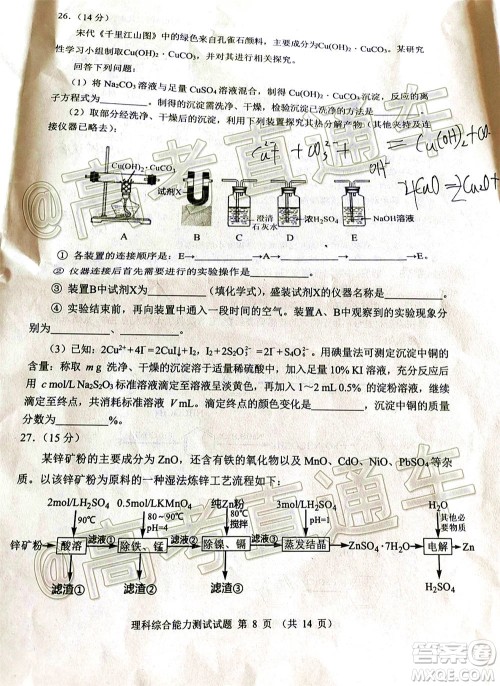 26.（14 分）
宋代《千里江山图》中的绿色来自孔雀石颜料，主要成分为Cu(OH)₂·CuCO₃，某研
究性学习小组制取Cu(OH)₂·CuCO₃，并对其进行相关探究。
回答下列问题：
（1）将 Na₂CO₃ 溶液与足量 CuSO₄ 溶液混合，制得 Cu(OH)₂·CuCO₃ 沉淀，反应的离
子方程式为________。制得的沉淀需洗净、干燥，检验沉淀已洗净的方法是________。
（2）取部分已经洗净、干燥后的沉淀，利用下列装置探究其热分解产物（其他夹持及连
接仪器已略去）：
Cu²⁺ + CO₃²⁻ + OH⁻ = Cu(OH)₂+CO
Cu(OH)₂·CuCO₃
试剂X
澄清
石灰水
浓H₂SO₄
NaOH溶液
A B C D E
① 各装置的连接顺序是：E→________→________→________→________→E。
② 仪器连接后首先需要进行的实验操作是________。
③ 装置B中试剂X为________（填化学式)，盛装试剂X的仪器名称为________。
④ 实验结束前，再向装置中通入一段时间空气。装置A、B中观察到的实验现象分
别为________、________。
（3）已知：2Cu²⁺+4I⁻=2CuI↓+I₂，I₂+2S₂O₃²⁻=S₄O₆²⁻+2I⁻。用碘量法可测定沉淀中铜的
含量：称取 m g 洗净、干燥的沉淀溶于适量稀硫酸中，加入足量 10% KI 溶液，充分反应后
用 c mol/L Na₂S₂O₃ 标准溶液滴定至呈淡黄色，再加入 1～2 mL 0.5% 的淀粉溶液，继续
滴定至终点，共消耗标准溶液 V mL。滴定终点的颜色变化是________，沉淀中铜的质量
分数为________。
27.（15 分）
某锌矿粉的主要成分为 ZnO，还含有铁的氧化物以及 MnO、CdO、NiO、PbSO₄ 等杂质。
以该锌矿粉为原料的一种湿法炼锌工艺流程如下：
2mol/LH₂SO₄ 0.5mol/LKMnO₄ 纯Zn粉 2mol/LH₂SO₄ H₂O 其他必要物质
90℃ 80～90℃ pH=4 80℃ 搅拌 pH=1
锌矿粉 酸溶 滤液① 除铁、锰 滤液② 除镍、镉 滤液③ 蒸发结晶 ZnSO₄·7H₂O 电解 Zn
滤渣① 滤渣② 滤渣③ H₂SO₄
理科综合能力测试试题 第 8 页 （共 14 页）
高考直通车